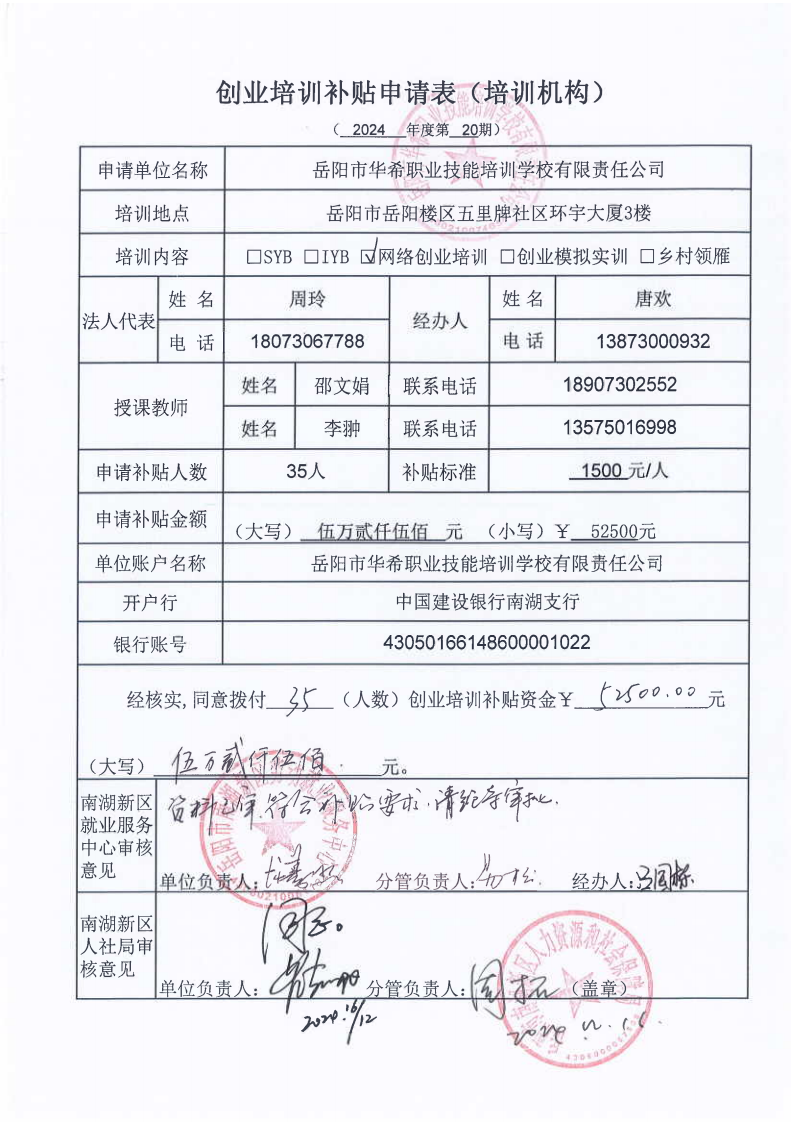 创业培训补贴申请表（培训机构）
（ 2024 年度第 20期）
申请单位名称 岳阳市华希职业技能培训学校有限责任公司
培训地点 岳阳市岳阳楼区五里牌社区环宇大厦3楼
培训内容 □SYB □IYB ☑网络创业培训 □创业模拟实训 □乡村领雁
法人代表 姓 名 周玲 经办人 姓 名 唐欢
电 话 18073067788 电 话 13873000932
授课教师 姓名 邵文娟 联系电话 18907302552
姓名 李翀 联系电话 13575016998
申请补贴人数 35人 补贴标准 1500 元/人
申请补贴金额 （大写） 伍万贰仟伍佰 元 （小写）￥ 52500元
单位账户名称 岳阳市华希职业技能培训学校有限责任公司
开户行 中国建设银行南湖支行
银行账号 43050166148600001022
经核实,同意拨付 35 （人数）创业培训补贴资金￥ 52500.00 元
（大写） 伍万贰仟伍佰 元。
南湖新区就业服务中心审核意见
资料已审,符合补贴要求,请领导审批.
单位负责人： 分管负责人： 经办人：
南湖新区人社局审核意见
同意。
单位负责人： 分管负责人： （盖章）
2024.12.16